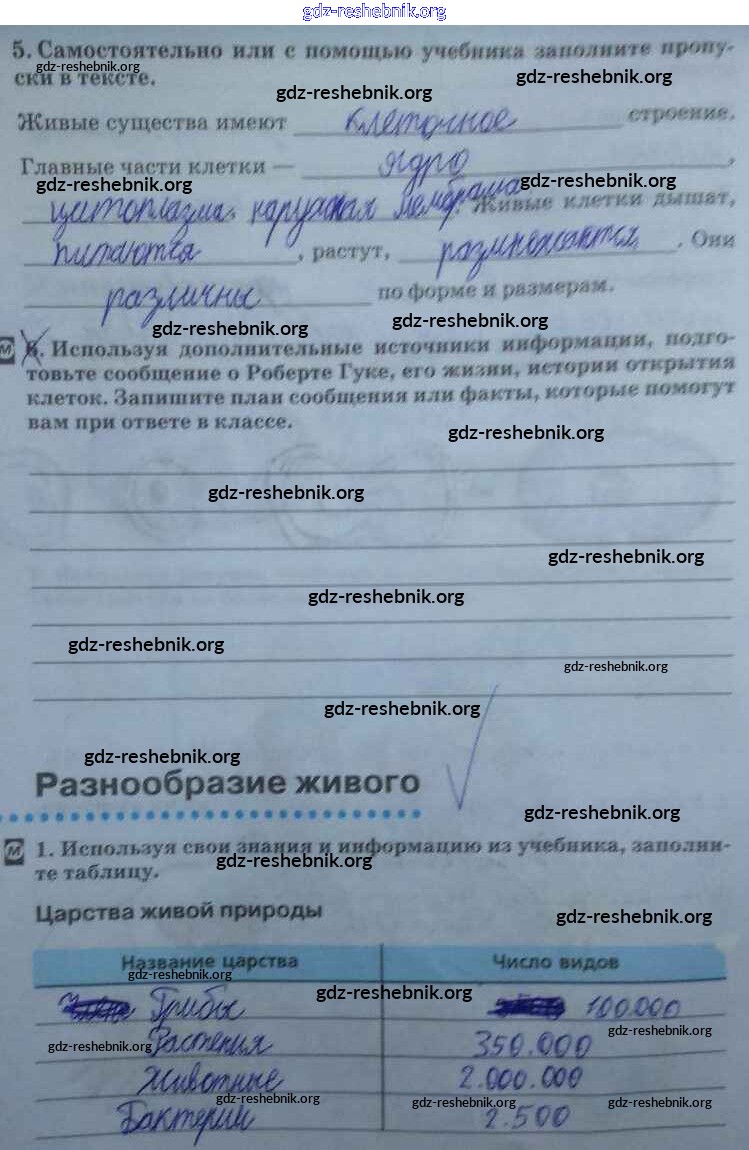 gdz-reshebnik.org
5. Самостоятельно или с помощью учебника заполните пропу-
gdz-reshebnik.org
ски в тексте.
gdz-reshebnik.org
gdz-reshebnik.org
Живые существа имеют клеточное строение.
Главные части клетки — ядро,
gdz-reshebnik.org gdz-reshebnik.org
цитоплазма, наружная мембрана. Живые клетки дышат,
питаются, растут, размножаются. Они
различны по форме и размерам.
gdz-reshebnik.org gdz-reshebnik.org
М 6. Используя дополнительные источники информации, подго-
товьте сообщение о Роберте Гуке, его жизни, истории открытия
клеток. Запишите план сообщения или факты, которые помогут
вам при ответе в классе.
gdz-reshebnik.org
gdz-reshebnik.org
gdz-reshebnik.org
gdz-reshebnik.org
gdz-reshebnik.org
gdz-reshebnik.org
gdz-reshebnik.org
gdz-reshebnik.org
Разнообразие живого
gdz-reshebnik.org
М 1. Используя свои знания и информацию из учебника, заполни-
gdz-reshebnik.org
те таблицу.
Царства живой природы
gdz-reshebnik.org
Название царства Число видов
gdz-reshebnik.org
gdz-reshebnik.org
Грибы 100.000
gdz-reshebnik.org
Растения 350.000
gdz-reshebnik.org
Животные 2.000.000
gdz-reshebnik.org gdz-reshebnik.org gdz-reshebnik.org
Бактерии 2.500